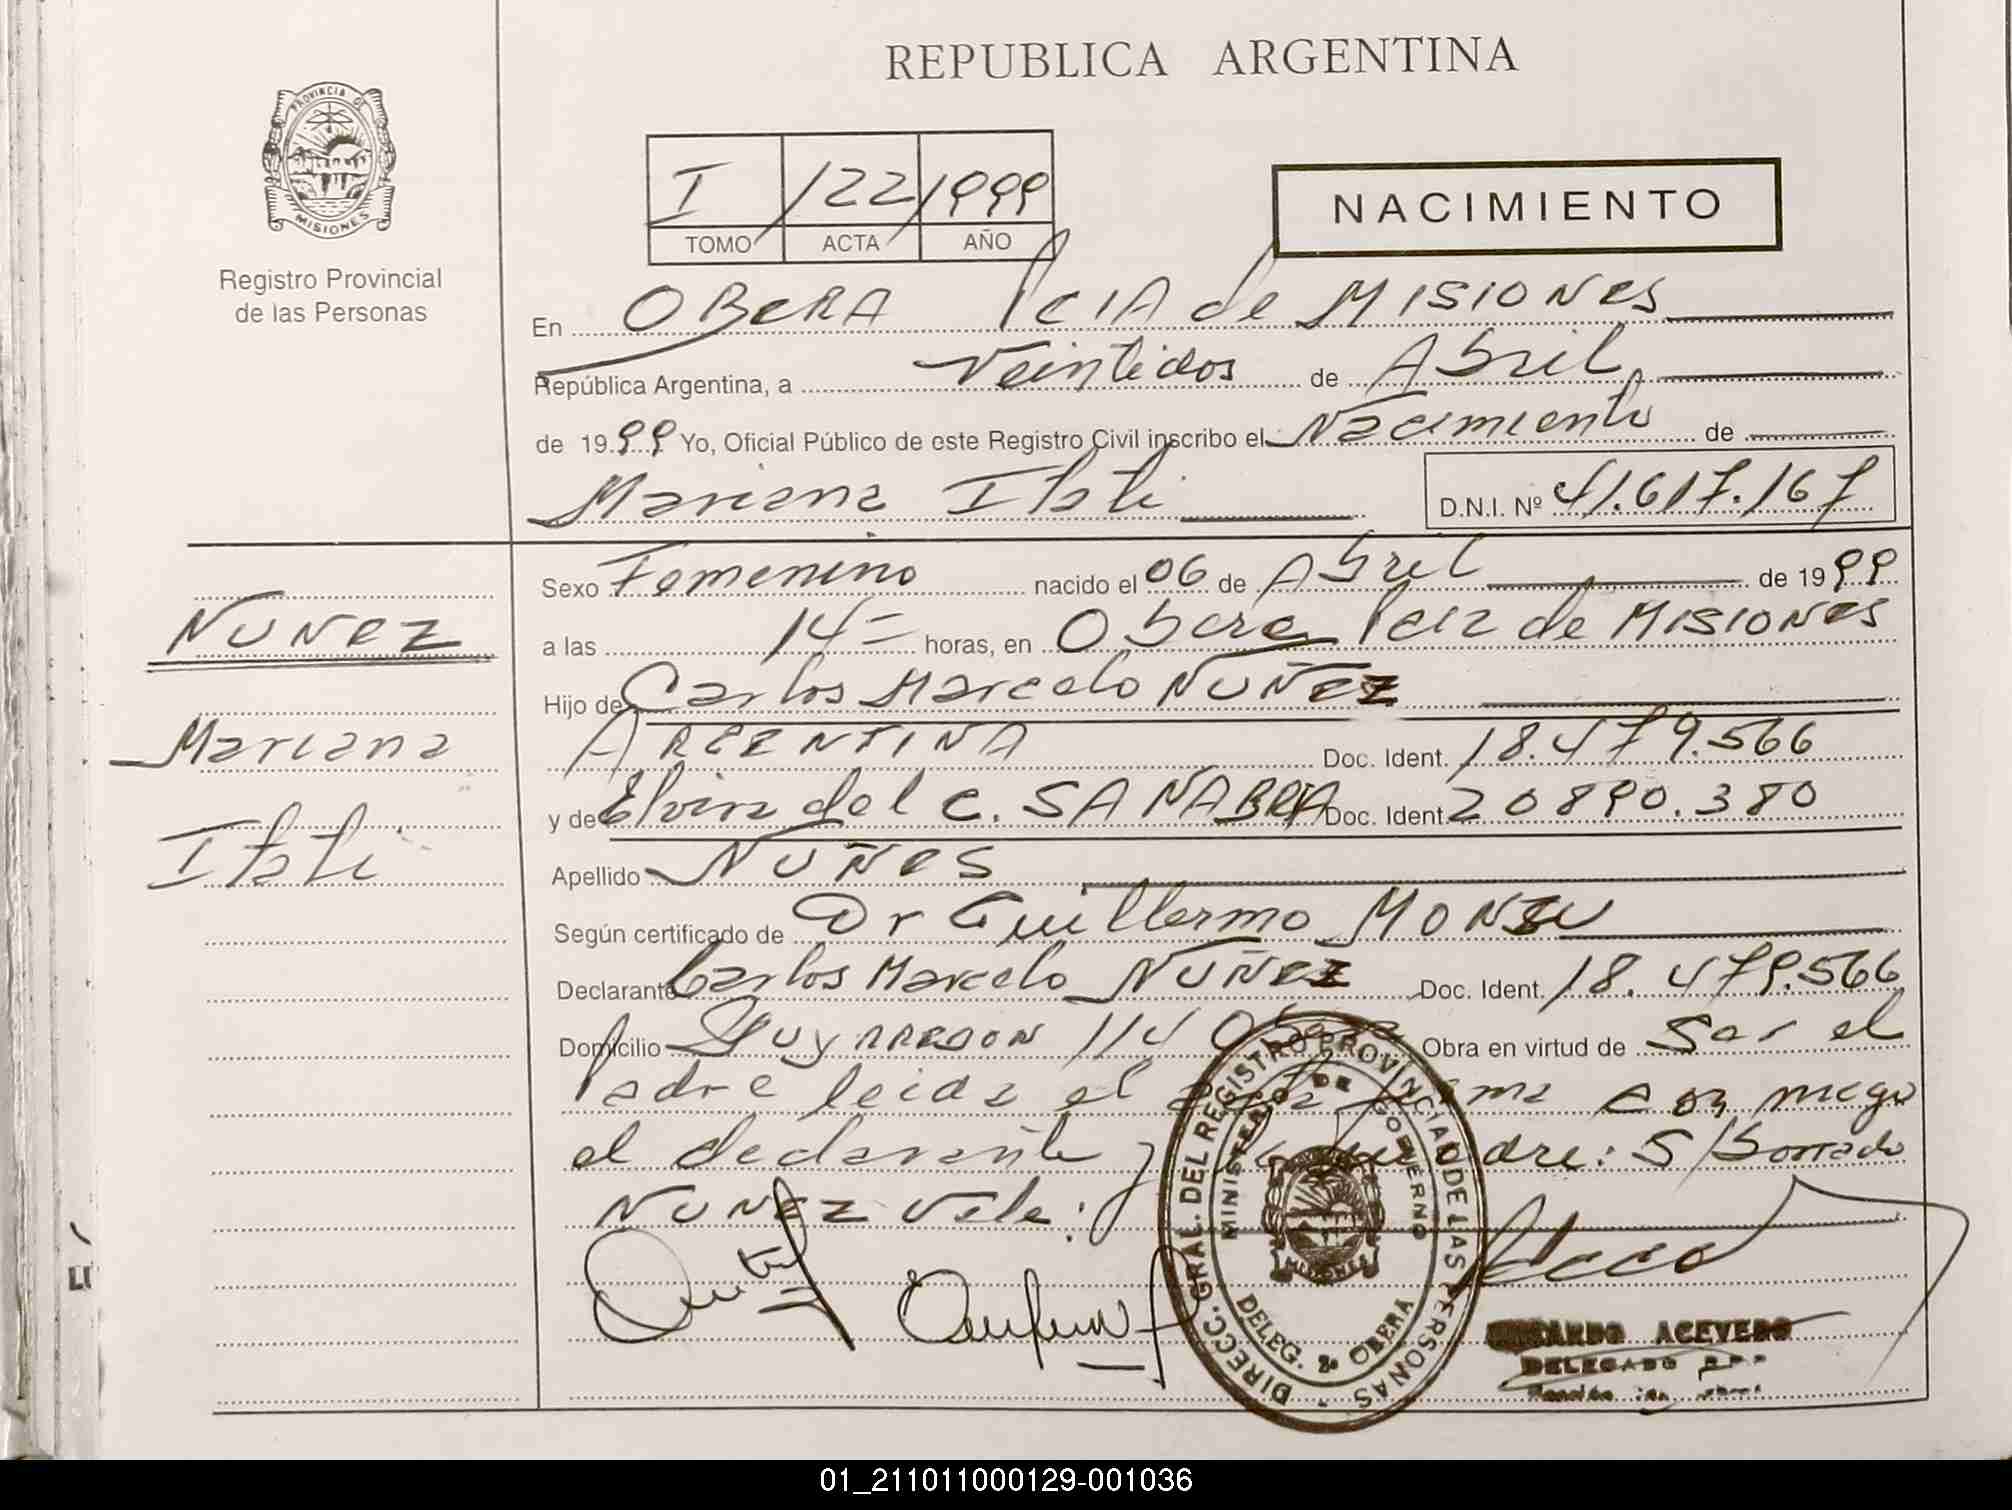 REPUBLICA ARGENTINA
PROVINCIA DE
MISIONES
Registro Provincial
de las Personas
I /22/1999
TOMO ACTA AÑO
NACIMIENTO
En OBERA Pcia de MISIONES
República Argentina, a Veintidos de Abril
de 1999 Yo, Oficial Público de este Registro Civil inscribo el Nacimiento de
Mariana Itati D.N.I. Nº 41.617.167
Sexo Femenino nacido el 06 de Abril de 1999
NUNEZ
a las 14= horas, en Obera Pcia de MISIONES
Hijo de Carlos Marcelo NUÑEZ
Mariana
ARGENTINA Doc. Ident. 18.479.566
y de Elvira del C. SANABRIA Doc. Ident. 20890.380
Itati
Apellido NUÑES
Según certificado de Dr Guillermo
Declarante Carlos Marcelo NUÑEZ Doc. Ident. 18.479.566
Domicilio 114 Obera Obra en virtud de Ser el
Padre leida el acta firma con migo
el declarante y la madre: S/Borrado
NUNEZ Vale:
DIRECC. GRAL. DEL REGISTRO PROVINCIAL DE LAS PERSONAS
MINISTERIO DE GOBIERNO
MISIONES
DELEG. 2º OBERA
ACEVEDO
DELEGADO
01_211011000129-001036